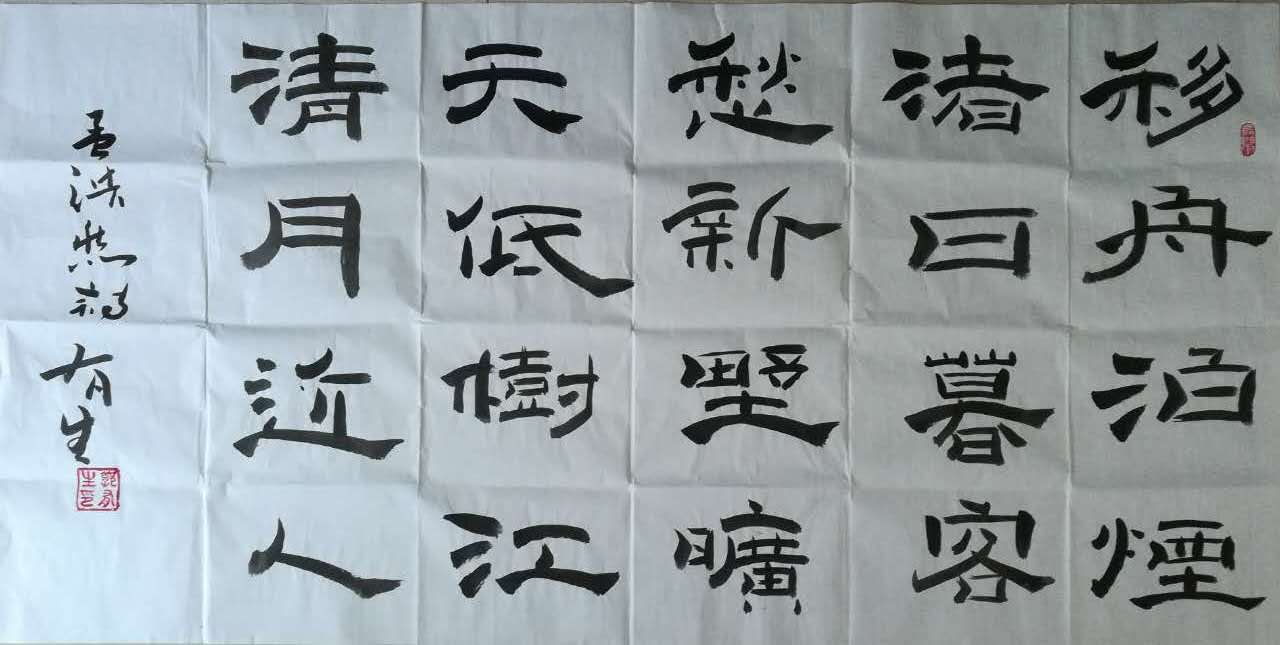 移舟泊煙
渚日暮客
愁新野曠
天低樹江
清月近人
孟浩然詩 有生